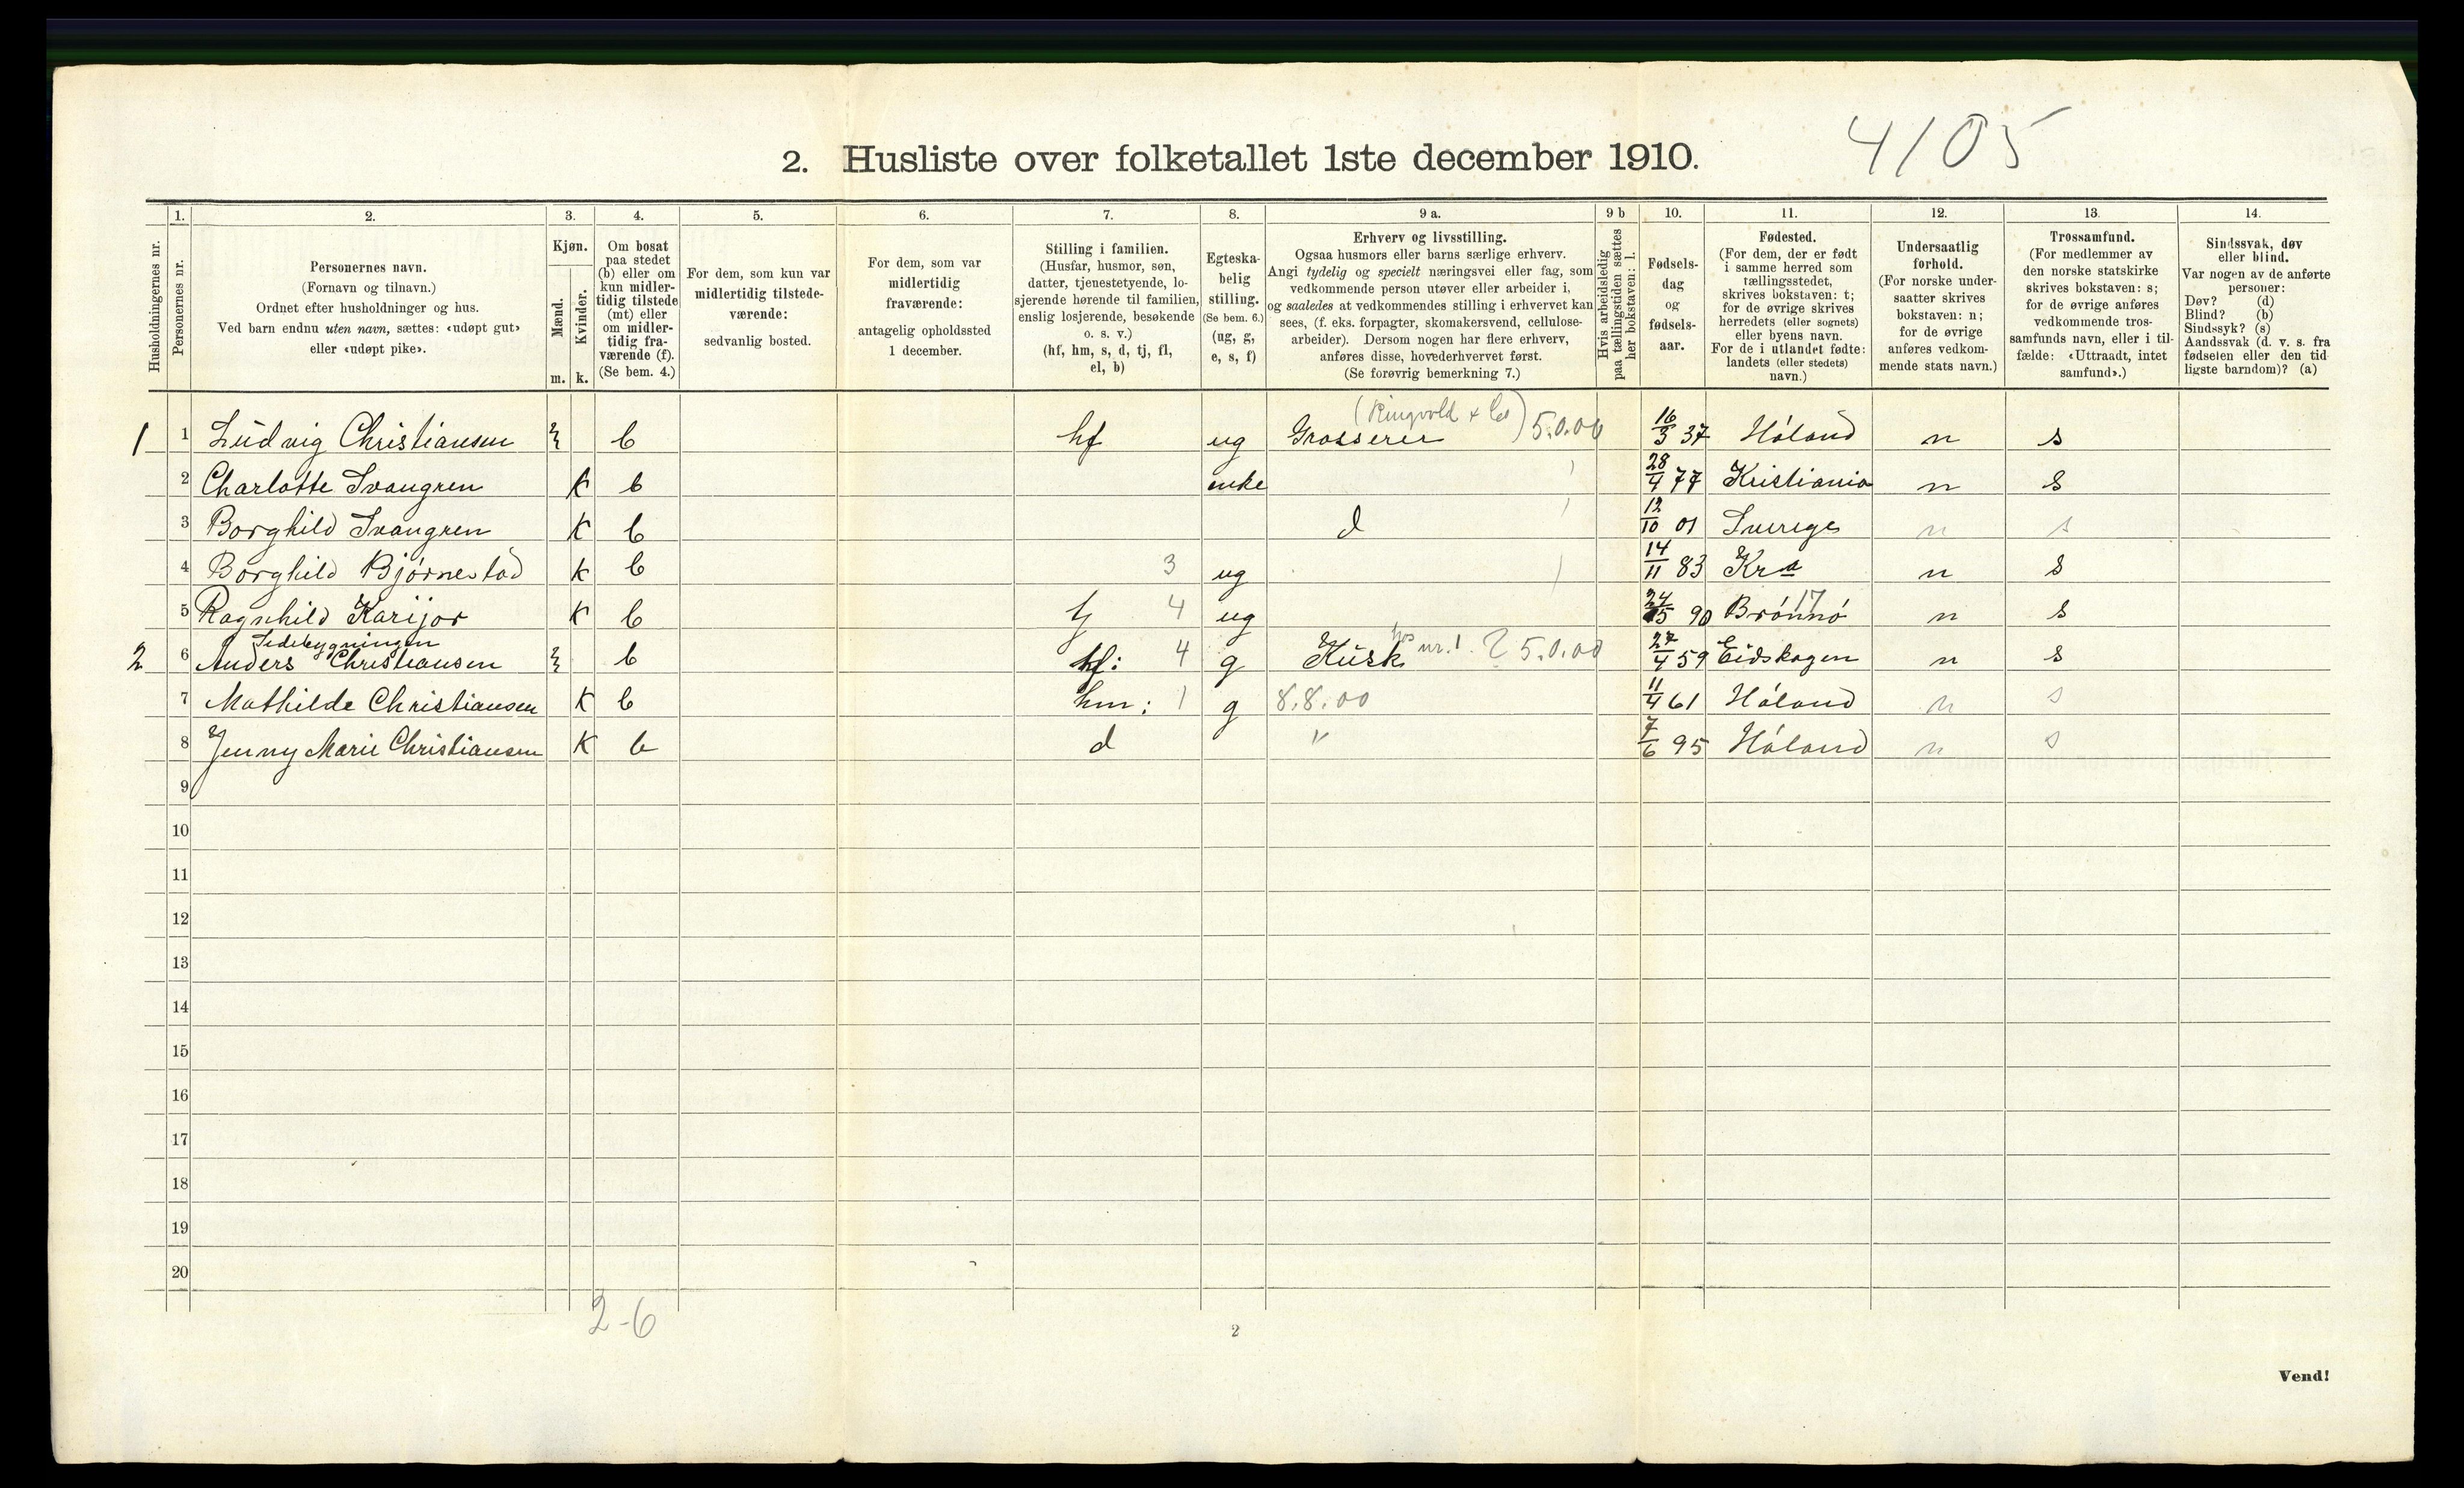 4105
2. Husliste over folketallet 1ste december 1910.
1. 2. 3. 4. 5. 6. 7. 8. 9 a. 9 b 10. 11. 12. 13. 14.
Husholdningernes nr.
Personernes nr.
Personernes navn.
(Fornavn og tilnavn.)
Ordnet efter husholdninger og hus.
Ved barn endnu uten navn, sættes: «udøpt gut»
eller «udøpt pike».
Kjøn.
Mænd.
Kvinder.
m. k.
Om bosat
paa stedet
(b) eller om
kun midler-
tidig tilstede
(mt) eller
om midler-
tidig fra-
værende (f).
(Se bem. 4.)
For dem, som kun var
midlertidig tilstede-
værende:
sedvanlig bosted.
For dem, som var
midlertidig
fraværende:
antagelig opholdssted
1 december.
Stilling i familien.
(Husfar, husmor, søn,
datter, tjenestetyende, lo-
sjerende hørende til familien,
enslig losjerende, besøkende
o. s. v.)
(hf, hm, s, d, tj, fl,
el, b)
Egteska-
belig
stilling.
(Se bem. 6.)
(ug, g,
e, s, f)
Erhverv og livsstilling.
Ogsaa husmors eller barns særlige erhverv.
Angi tydelig og specielt næringsvei eller fag, som
vedkommende person utøver eller arbeider i,
og saaledes at vedkommendes stilling i erhvervet kan
sees, (f. eks. forpagter, skomakersvend, cellulose-
arbeider). Dersom nogen har flere erhverv,
anføres disse, hovederhvervet først.
(Se forøvrig bemerkning 7.)
Hvis arbeidsledig
paa tællingstiden sættes
her bokstaven: l.
Fødsels-
dag
og
fødsels-
aar.
Fødested.
(For dem, der er født
i samme herred som
tællingsstedet,
skrives bokstaven: t;
for de øvrige skrives
herredets (eller sognets)
eller byens navn.
For de i utlandet fødte:
landets (eller stedets)
navn.)
Undersaatlig
forhold.
(For norske under-
saatter skrives
bokstaven: n;
for de øvrige
anføres vedkom-
mende stats navn.)
Trossamfund.
(For medlemmer av
den norske statskirke
skrives bokstaven: s;
for de øvrige anføres
vedkommende tros-
samfunds navn, eller i til-
fælde: «Uttraadt, intet
samfund».)
Sindssvak, døv
eller blind.
Var nogen av de anførte
personer:
Døv? (d)
Blind? (b)
Sindssyk? (s)
Aandssvak (d. v. s. fra
fødselen eller den tid-
ligste barndom)? (a)
(Ringvold & Co)
1 1 Ludvig Christiansen m b hf ug Grosserer 5.0.00 16/3 37 Høland n s
2 Charlotte Svangren k b enke 28/4 77 Kristiania n s
3 Borghild Svangren k b d 12/10 01 Sverige n s
4 Borghild Bjørnestad k b 3 ug 14/11 83 Kra n s
5 Ragnhild Karijor k b tj 4 ug 24/5 90 Brønnø 17 n s
Sidebygningen
2 6 Anders Christiansen m b hf: 4 g Kusk hos nr. 1. 25.0.00 27/4 59 Eidskogen n s
7 Mathilde Christiansen k b hm: 1 g 8.8.00 11/4 61 Høland n s
8 Jenny Marie Christiansen k b d " 7/6 95 Høland n s
9
10
11
12
13
14
15
16
17
18
19
20
2-6
2
Vend!